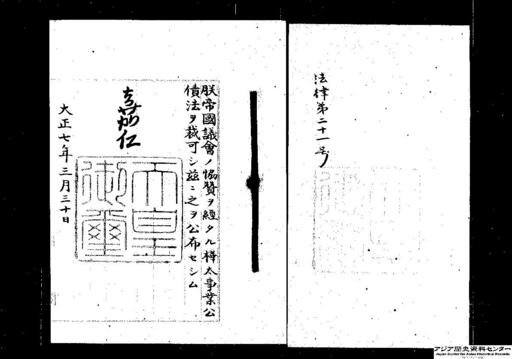 法律第二十一号
朕帝國議會ノ協賛ヲ經タル樺太事業公
債法ヲ裁可シ茲ニ之ヲ公布セシム
嘉仁
天皇御璽
大正七年三月三十日
アジア歴史資料センター
Japan Center for Asian Historical Records